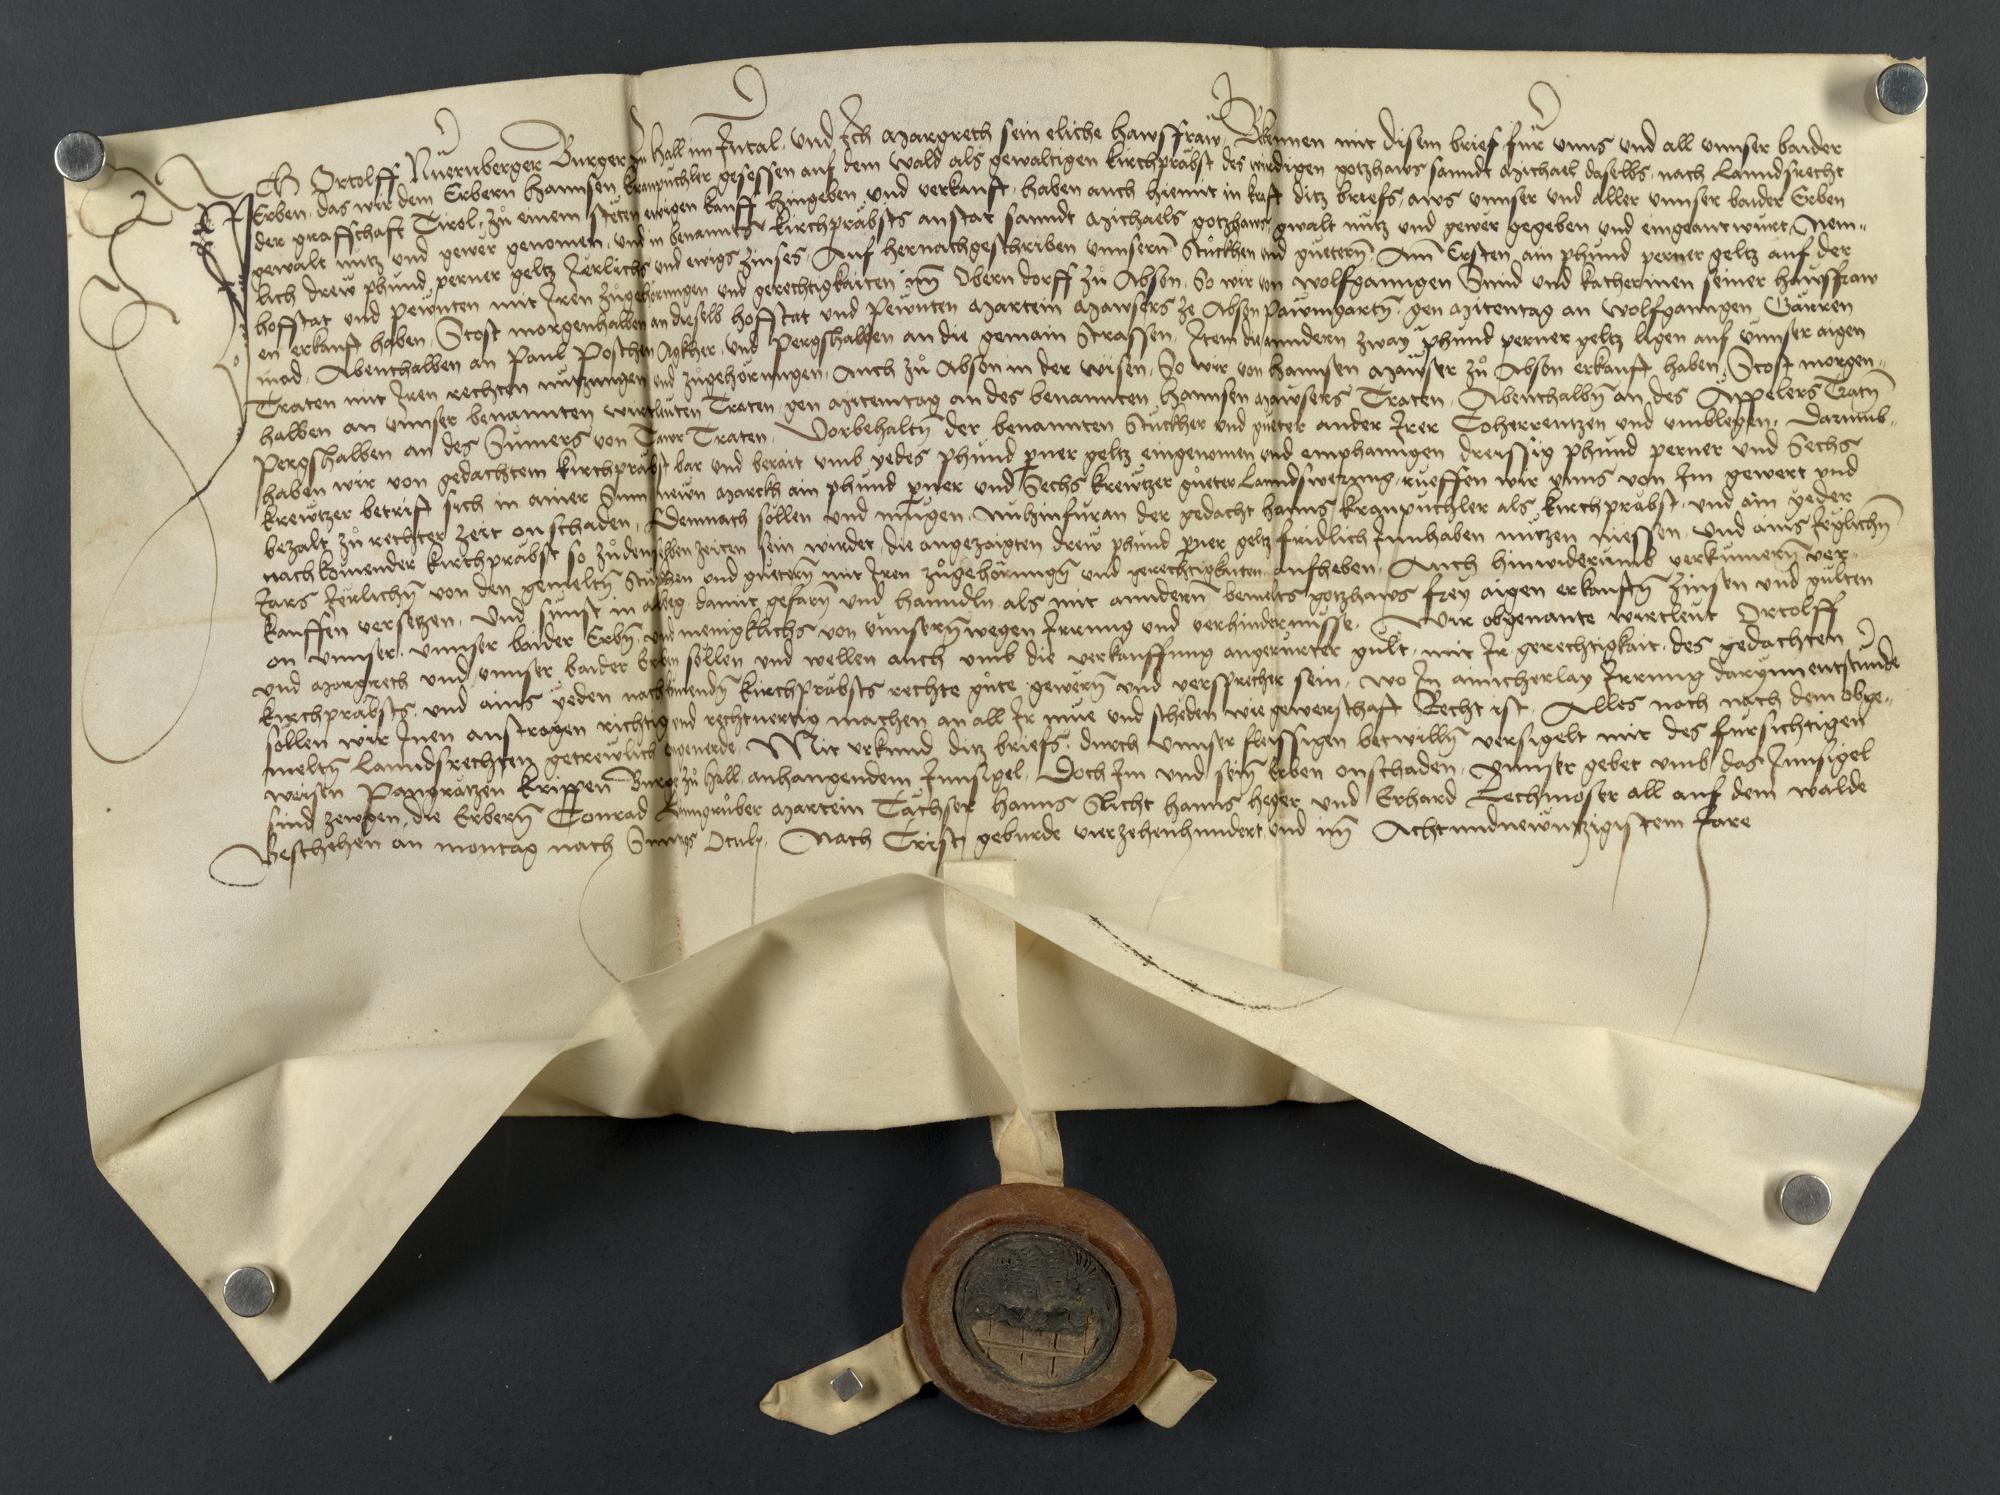 Ich Ortolff Nüernberger Burger zu Hall im Intal, und Ich Margreth sein eliche hawsfraw, Bekennen mit disem brief für vnns vnd all vnnser baider
Erben, das wir dem Erbern Hannsen Kranpuchler gesessen auf dem Wald als gewaltigen kirchprabst des wirdigen gotzhaws sanndt Michael daselbs, nach Lanndsrecht
der graffschaft Tirol, zů einem stëten ewigen kauff hingeben vnd verkauft, haben auch hiemit in kraft ditz briefs, aws vnnser vnd aller vnnser baider Erben
gewalt nutz vnd gewer genomen, vnd in benannts kirchprabsts anstat sanndt Michaels gotzhaws gwalt nutz vnd gewer gegeben vnd eingeantwurt, Nem-
lich drew phund perner geltz Jërlichs vnd ewigs zinses, Auf hernachgeschriben vnnsern Stuckhen vnd guetern, Am Ersten ain phund perner geltz auf der
hofstat vnd Pewnten mit Iren zůgehörungen vnd gerechtigkaiten im Oberndorff zů Abson, So wir von Wolfganngen Smid vnd katherinen seiner hawsfraw
en erkauft haben, Stost morgenhalben an dieselb hofstat vnd Pewnten Martein Mawsers ze Absn Pawmgartn, gen Mitentag an Wolfganngen Gärren
mad, Abenthalben an Paul Poschen Agkher, vnd Pergshalben an die gemain Strassen, Item die anndern zway phund perner geltz ligen auf vnnser aigen
Traten mit Iren rechten nutzungen vnd zůgehörungen, Auch zů Absom in der Wisen, So wir von hannsen Mawser zů Absom erkauft haben, Stost morgen-
halben an vnnser benannten wirtleuten Traten, gen Mitemtag an des benannten hannsen Mawsers Traten, Abenthalbn an des Appelers Tratn
Pergshalben an des Sumers von Tawr Traten, Vorbehaltn der benannten Stuckher vnd gueter ander Irer Coherrentzen vnd vmblegen, Darumb
haben wir von gedachtem kirchprabst bar vnd berait vmb yedes phund perner geltz eingenomen vnd emphanngen dreissig phund perner vnd Sechs
krewtzer betrift sich in ainer Sum newn Marckh ain phund perner vnd Sechs krewtzer gueter Lanndswerung, rueffen wir vnns von Im gewert vnd
bezalt zů rechter zeit on schaden, Demnach sollen vnd mügen, nuhinfuran der gedacht hanns Kranpuchler als kirchprabst, vnd ain yeder
nachkomender kirchprabst so zů denselben zeiten sein wirdet, die angezaigten drew phund perner geltz fridlich Innhaben nutzen niessen, vnd ains Jeglichn
Jars Jërlichn von den gemeltn Stuckhen vnd guetern mit Iren zůgehörungn vnd gerechtigkaiten aufheben, Auch hinwiderumb verkumern ver-
kauffen versetzen, vnd sunst in albeg damit gefarn vnd hanndln als mit anndern bemelts gotzhaws frey aigen erkauftn zinsen vnd gülten
on vnnser, vnnser baider Erbn vnd menigklichs von vnnsern wegen Irrung vnd verhindernusse, Wir obgenante wirtleut Ortolff
vnd Margreth vnd vnnser baider Erben sollen vnd wellen auch vmb die verkauffung angerürter gült, mit Ir gerechtigkait, des gedachten
kirchprabsts, vnd ains yeden nachkomendn kirchprabsts rechte gůte gewern vnd versprecher sein, wo In ainicherlay Irrung darynn entstunde
sollen wir Inen austragen richtig vnd rechtuertig machen an all Ir mue vnd schëden wie gewerschaft Recht ist, Alles nach nach dem obge-
meltn Lanndsrechten getrewlich vngeuerde, Mit vrkund ditz briefs, durch vnnser fleissigen betwilln versigelt mit des fursichtigen
weisen Pangrätzen Krippen Burger zů Hall, anhangendem Innsigel, Doch Im vnd sein Erben onschaden, Vnnser gebet vmb das Innsigel
sind zewgen, die Erbern Conrad Lungrůber Martein Tächser Hanns Slicht hanns heger, vnd Erhard Lechmoser all auf dem walde
Beschehen an montag nach Sunntags Oculj, Nach Cristj geburde vierzehenhundert vnd im Achtundnewntzigistem Jare